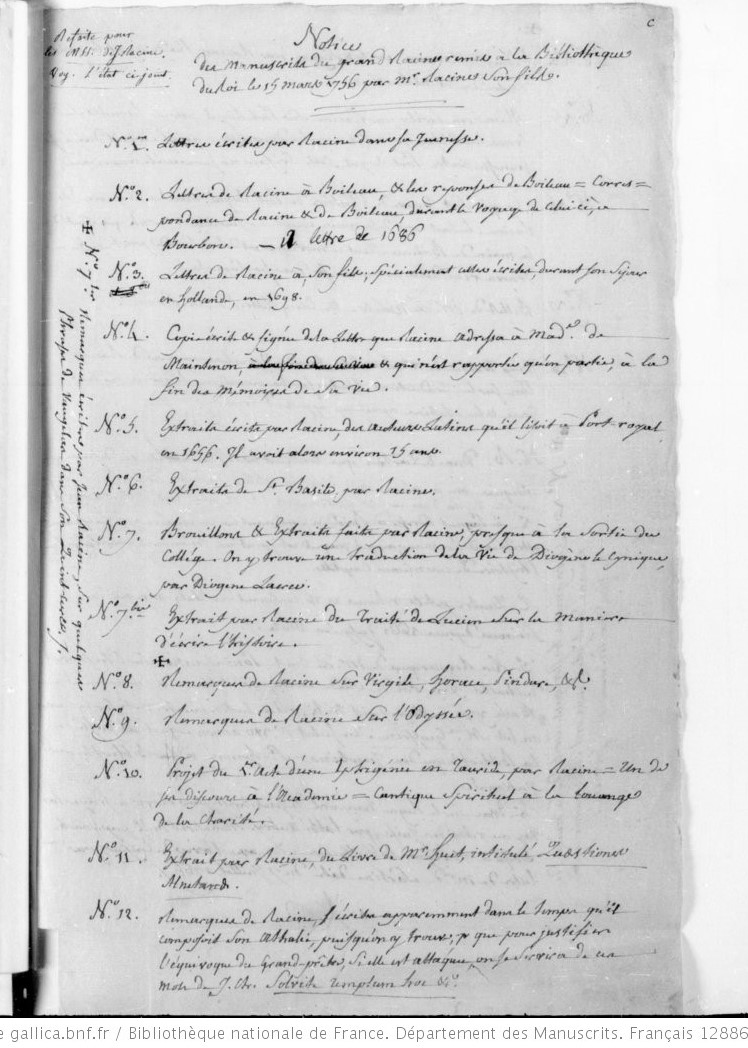 c
Refaite pour
les Mss. de J. Racine.
Voy. l'état ci-joint.
Notice
des Manuscrits du grand Racine remis à la Bibliothèque
du Roi le 15 mars 1756 par Mr. Racine Son fils.
N.o 1.er Lettres écrites par Racine dans sa Jeunesse.
N.o 2. Lettres de Racine à Boileau, & les reponses de Boileau = Corres=
pondance de Racine & de Boileau, durant le Voyage de celui-ci, a
Bourbon. — 1 lettre de 1686
N.o 3. Lettres de Racine à Son fils, spécialement celles écrites, durant son Sejour
en hollande, en 1698.
N.o 4. Copie écrite & signée de la Lettre que Racine adressa à Mad.e de
Maintenon, & qui n'est rapportée qu'en partie, à la
fin des Mémoires de Sa Vie.
N.o 5. Extraits écrits par Racine, des auteurs Latins qu'il lisoit à Port-royal
en 1656. Il avoit alors environ 15 ans.
N.o 6. Extraits de St. Basile, par Racine.
N.o 7. Brouillons & Extraits faits par Racine, presque à la Sortie du
Collége. On y trouve une traduction de la Vie de Diogène le Cynique,
par Diogene Laerce.
N.o 7.bis Extrait par Racine du Traité de Lucien Sur la Maniere
d'écrire l'histoire.
✠
N.o 8. Remarques de Racine Sur Virgile, horace, Pindare, &c.
N.o 9. Remarques de Racine Sur l'Odyssée.
N.o 10. Projet du 1.er Acte d'une Iphigénie en Tauride, par Racine = Un de
ses discours à l'Academie = Cantique Spirituel à la louange
de la Charité.
N.o 11. Extrait par Racine, du Livre de Mr. huet, intitulé Quæstiones
Alnetanæ.
N.o 12. Remarques de Racine, écrites apparemment dans le temps qu'il
composoit Son Athalie, puisqu'on y trouve, que pour justifier
l'équivoque du Grand-prêtre, Si elle est attaquée, on Se Servira de ces
mots de J. Chr. Solvite templum hoc &c.
✠ N.o 7.ter Remarques écrites par Jean Racine, Sur quelques
Phrases de Vaugelas dans Son Quint-curce.
e gallica.bnf.fr / Bibliothèque nationale de France. Département des Manuscrits. Français 12886